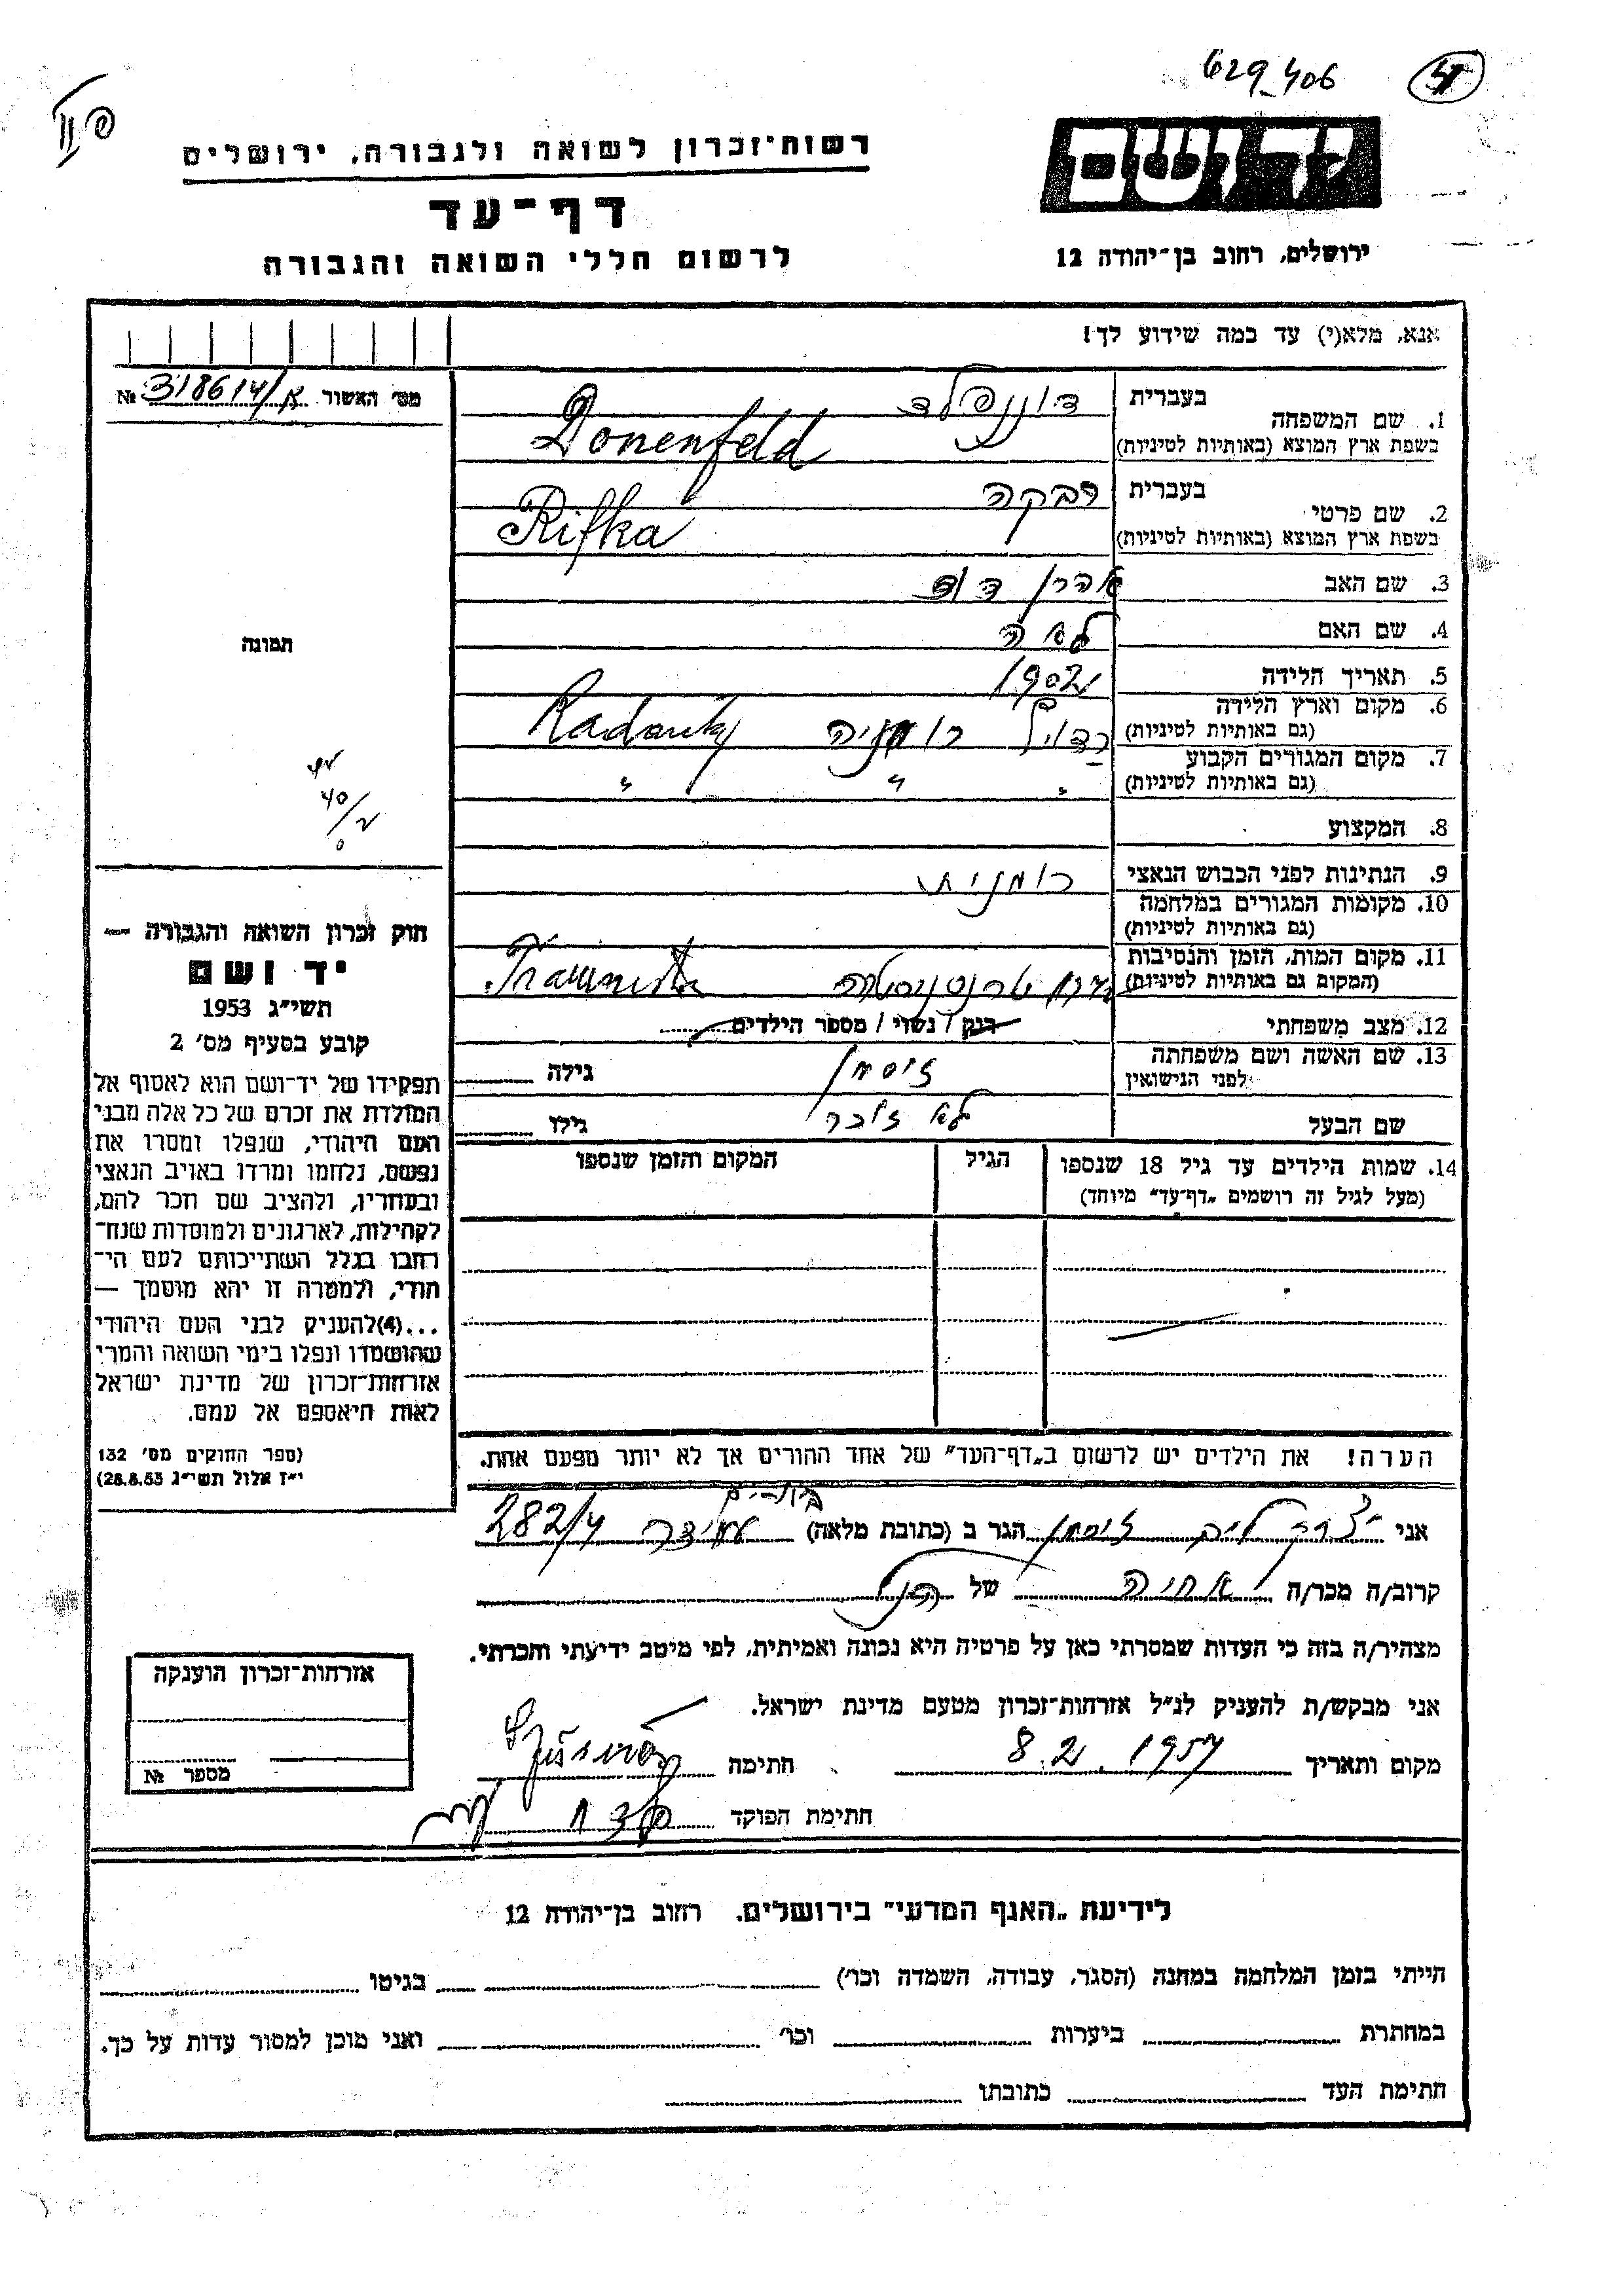 629_406
יד ושם
רשות־זכרון לשואה ולגבורה, ירושלים
דף־עד
לרשום חללי השואה והגבורה
ירושלים, רחוב בן־יהודה 12
אנא, מלא(י) עד כמה שידוע לך!
מס׳ האשור א/318614 №
1. שם המשפחה
בעברית דוננפלד
בשפת ארץ המוצא (באותיות לטיניות) Donenfeld
2. שם פרטי
בעברית רבקה
בשפת ארץ המוצא (באותיות לטיניות) Rifka
3. שם האב אהרן דוד
4. שם האם לאה
5. תאריך הלידה 1902
6. מקום וארץ הלידה
(גם באותיות לטיניות) רדויץ רומניה
7. מקום המגורים הקבוע
(גם באותיות לטיניות) " " "
8. המקצוע
9. הנתינות לפני הכבוש הנאצי רומנית
10. מקומות המגורים במלחמה
(גם באותיות לטיניות)
11. מקום המות, הזמן והנסיבות
(המקום גם באותיות לטיניות) טרנסניסטריה
12. מצב משפחתי רוק / נשוי / מספר הילדים
13. שם האשה ושם משפחתה
לפני הנישואין זיסמן גילה
שם הבעל לא זוכר גילו
14. שמות הילדים עד גיל 18 שנספו
(מעל לגיל זה רושמים „דף־עד״ מיוחד)
הגיל
המקום והזמן שנספו
תמונה
חוק זכרון השואה והגבורה —
יד ושם
תשי״ג 1953
קובע בסעיף מס׳ 2
תפקידו של יד־ושם הוא לאסוף אל
המולדת את זכרם של כל אלה מבני
העם היהודי, שנפלו ומסרו את
נפשם, נלחמו ומרדו באויב הנאצי
ובעוזריו, ולהציב שם וזכר להם,
לקהילות, לארגונים ולמוסדות שנח־
רבו בגלל השתייכותם לעם הי־
הודי, ולמטרה זו יהא מוסמך —
...(4) להעניק לבני העם היהודי
שהושמדו ונפלו בימי השואה והמרי
אזרחות־זכרון של מדינת ישראל
לאות היאספם אל עמם.
(ספר החוקים מס׳ 132
י״ז אלול תשי״ג 28.8.53)
הערה! את הילדים יש לרשום ב„דף־העד״ של אחד ההורים אך לא יותר מפעם אחת.
אני זיסמן הגר ב (כתובת מלאה) 282/4
קרוב/ה מכר/ה אחיה של הנ״ל
מצהיר/ה בזה כי העדות שמסרתי כאן על פרטיה היא נכונה ואמיתית, לפי מיטב ידיעתי והכרתי.
אני מבקש/ת להעניק לנ״ל אזרחות־זכרון מטעם מדינת ישראל.
מקום ותאריך 8.2.1957 חתימה
חתימת הפוקד
אזרחות־זכרון הוענקה
מספר №
לידיעת „האגף המדעי״ בירושלים. רחוב בן־יהודה 12
הייתי בזמן המלחמה במחנה (הסגר, עבודה, השמדה וכו׳) בגיטו
במחתרת ביערות וכו׳ ואני מוכן למסור עדות על כך.
חתימת העד כתובתו